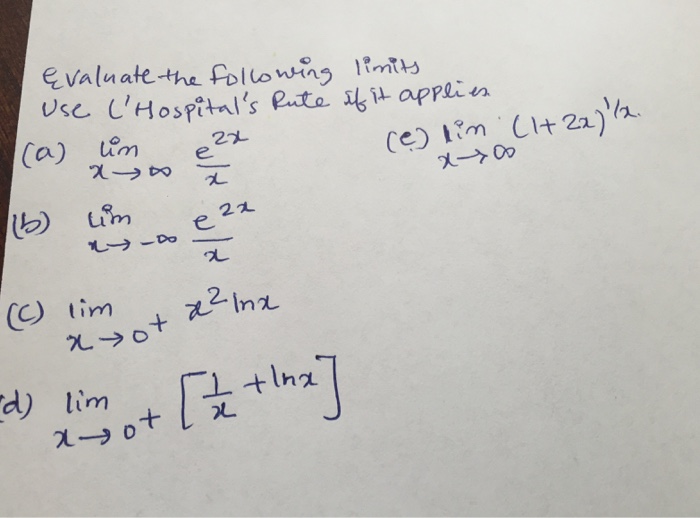 Evaluate the following limits
Use L'Hospital's Rule if it applies
(a) lim x→∞ e^{2x}/x
(b) lim x→-∞ e^{2x}/x
(c) lim x→0+ x² ln x
(d) lim x→0+ [1/x + ln x]
(e) lim x→∞ (1+2x)^{1/x}.